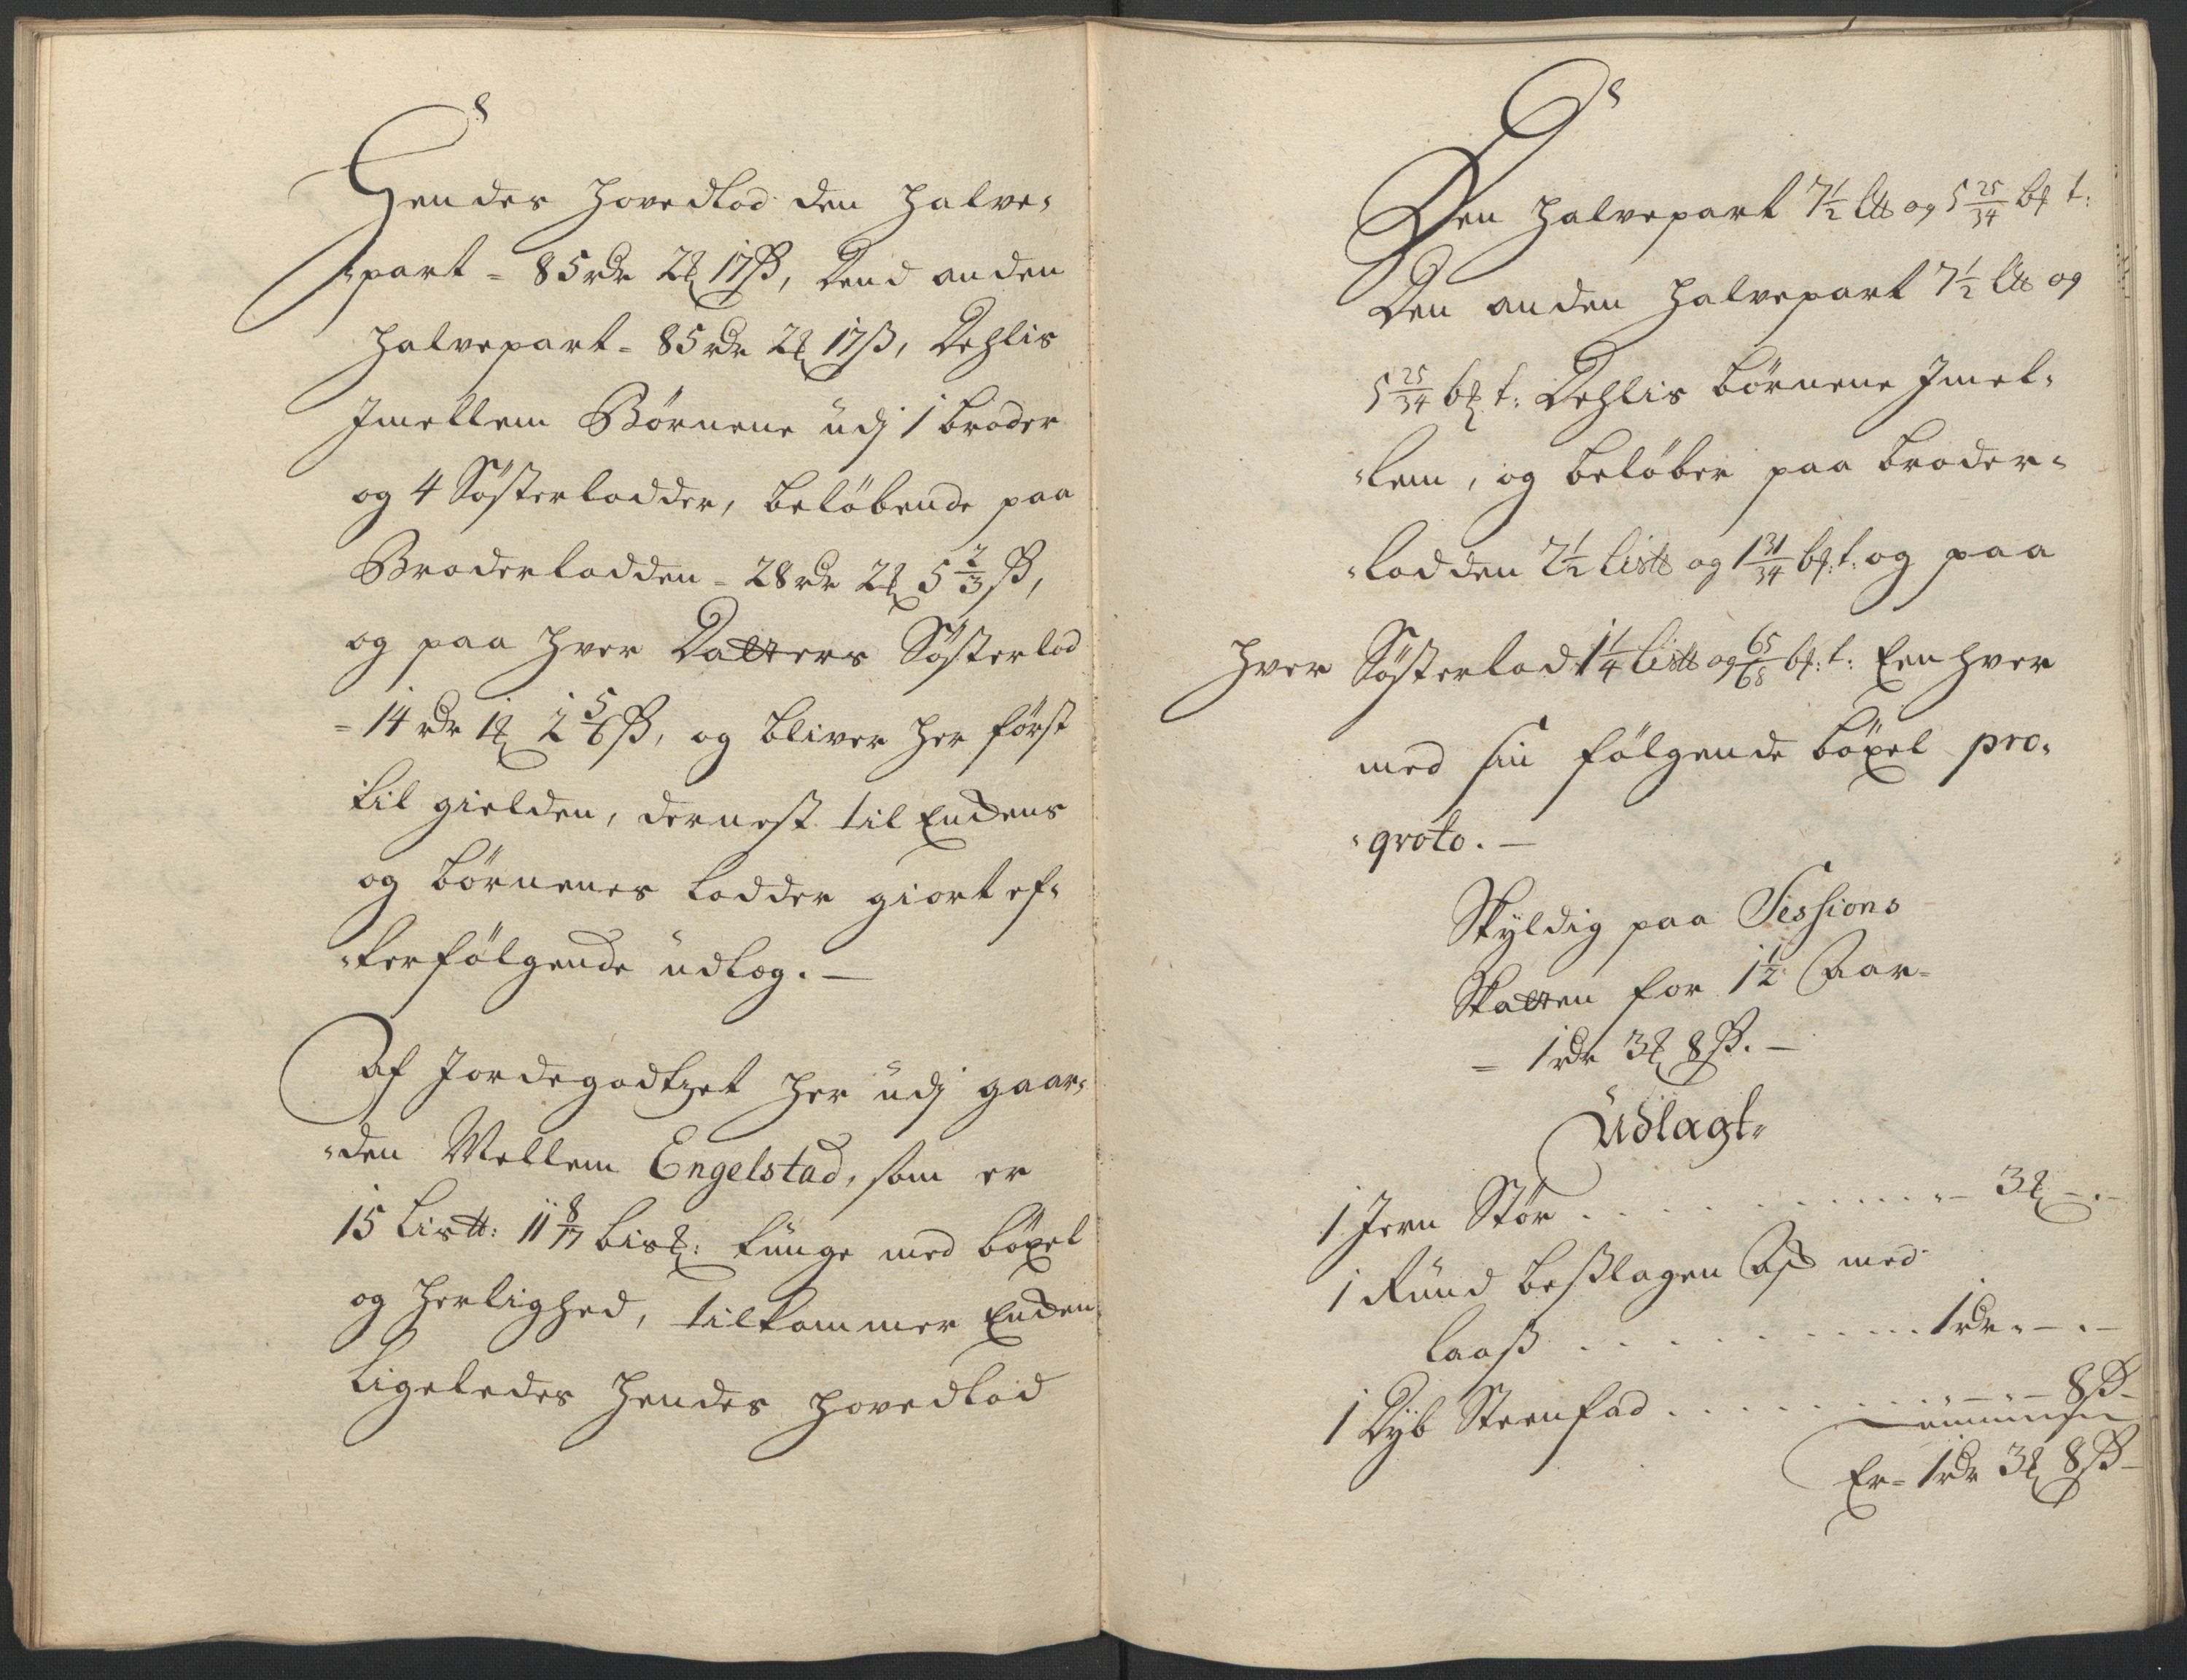 Hendes hovedlod den halve¬
¬part = 85 rdr 2 ℔ 17 ß, dend anden
halvepart = 85 rdr 2 ℔ 17 ß, Dehlis
Jmellem Børnene üdj 1 broder
og 4 Søsterlodder, beløbende paa
Broderlodden = 28 rdr 2 ℔ 5 2/3 ß,
og paa hver Datters Søsterlod
= 14 rdr 1 ℔ 2 5/6 ß, og bliver her først
til gielden, dernest til Enchens
og børnenes lodder giort ef¬
¬terfølgende üdlog. —
Af Jordegodtzet her üdj gaar¬
¬den Mellem Engelstad, som er
15 List℔: 11 8/17 bis℔: tünge med bøxel
og herlighed, tilkommer Enchen
ligeledes hendes hovedlod
Den halvepart 7 1/2 l℔ og 5 25/34 b℔ t:
Den anden halvepart 7 1/2 l℔ og
5 25/34 b℔ t: Dehlis børnene Jmel¬
¬lem, og beløber paa broder¬
¬lodden 2 1/2 lis℔ og 1 31/34 b℔: t: og paa
hver Søsterlod 1 1/4 lis℔ og 65/68 b℔: t: Een hver
med sin følgende bøxel pro¬
¬qvoto. —
Skyldig paa Sessions
Skatten for 1 1/2 Aar =
= 1 rdr 3 ℔ 8 ß. —
Üdlagt
1 Jern Stør . . . . . . . . . . — 3 ℔ — . —
1 Ründ beslagen Ask med
laaß . . . . . . . . . . 1 rdr . — . —
1 Dyb Steenfad . . . . . . . — . — 8 ß —
Er = 1 rdr 3 ℔ 8 ß —